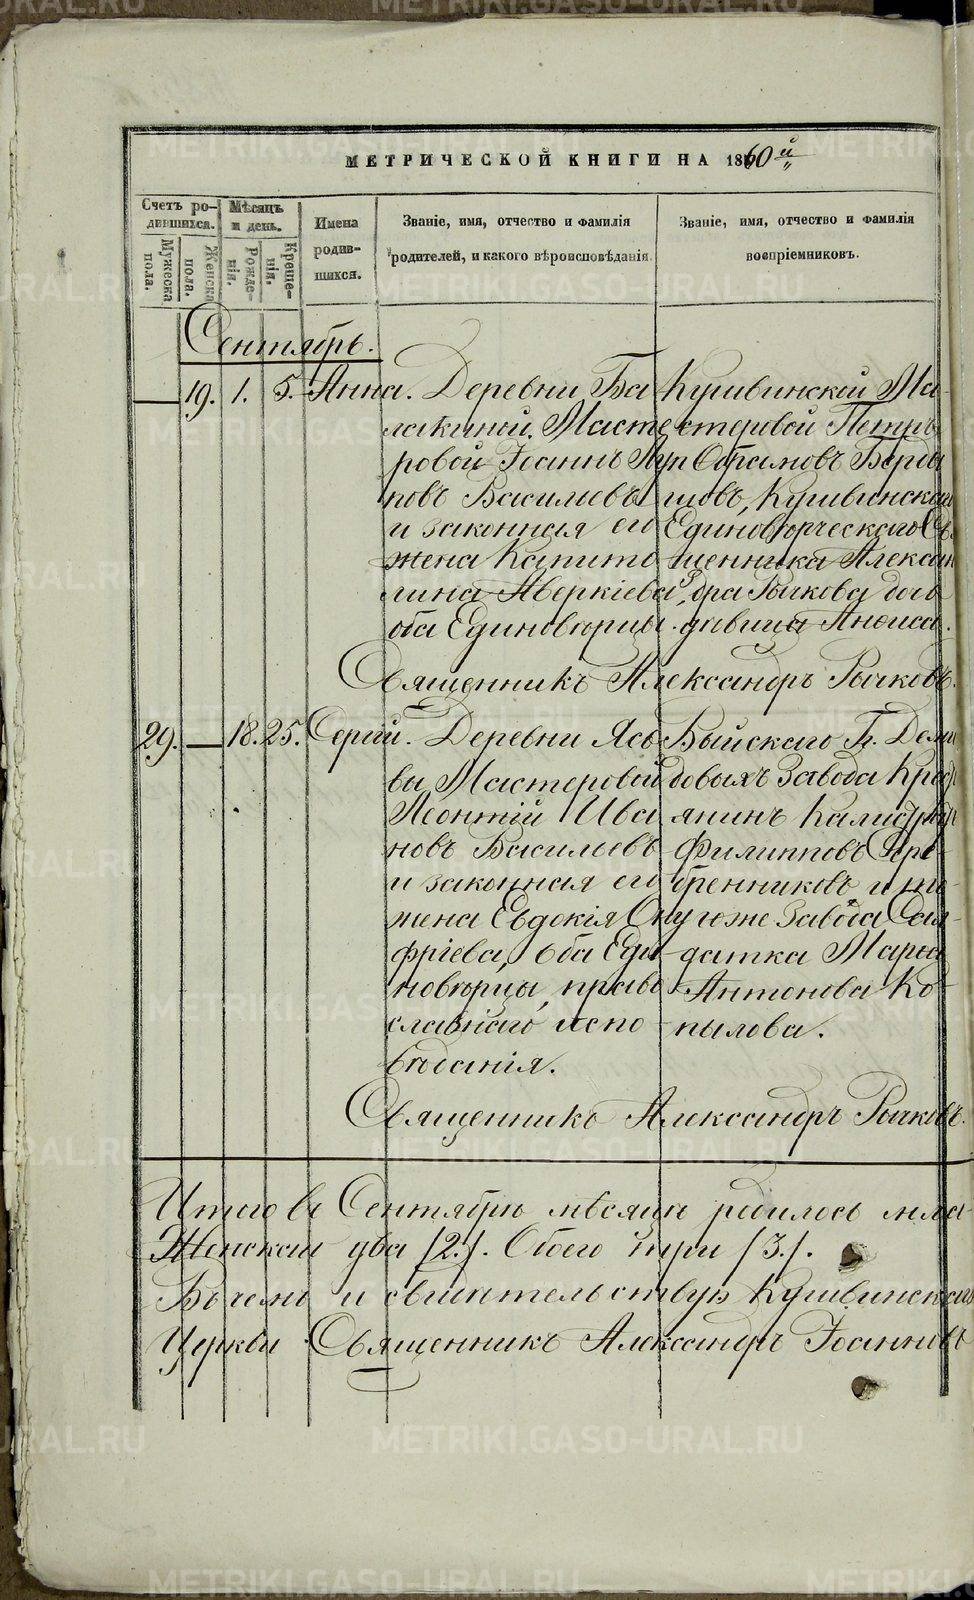 МЕТРИЧЕСКОЙ КНИГИ НА 1860й
Счетъ ро-
дившихся.
Мужеска пола.
Женска пола.
Мѣсяцъ
и день.
Рожде-
нія.
Креще-
нія.
Имена
родив-
шихся.
Званіе, имя, отчество и фамилія
родителей, и какого вѣроисповѣданія.
Званіе, имя, отчество и фамилія
воспріемниковъ.
Сентябрь.
19. 1. 5. Анна. Деревни Ба
лакиной, Масте
ровой Іоаннъ
новъ Василиевъ
и законная его
жена Капито
лина Аверкіева,
оба Единовѣрцы.
Кушвинскій Ма-
стеровой Петръ
Кушвинской
Единовѣрческаго Свя
щенника Алексан
дра Рычкова дочь
дѣвица Аниса.
Священникъ Александръ Рычковъ.
29. 18. 25. Сергій. Деревни Ясь
вы Мастеровой
Леонтій Ива
новъ Василиевъ
и законная его
жена Евдокія Ону
фріева, оба Еди
новѣрцы, право
славнаго испо
вѣданія.
Быйскаго Г. Деми
довыхъ Завода Крест
янинъ
Филипповъ Сере-
бренниковъ и то
гоже Завода Сол-
датка Марья
Антонова Ко-
пылова.
Священникъ Александръ Рычковъ.
Итого въ Сентябрѣ мѣсяцѣ родилось мла
Женскаго два /2./. Обоего три /3./.
Въ чемъ и свидѣтельствую Кушвинской
Церкви Священникъ Александръ Іоанновъ
METRIKI.GASO-URAL.RU